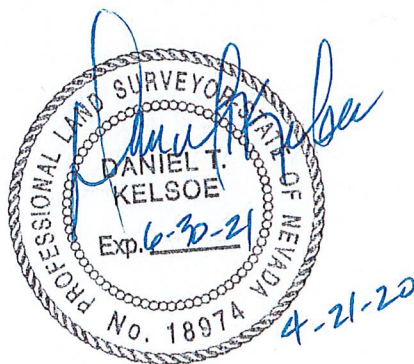 PROFESSIONAL LAND SURVEYOR STATE OF NEVADA
Daniel T Kelsoe
DANIEL T.
KELSOE
Exp. 6-30-21
No. 18974
4-21-20